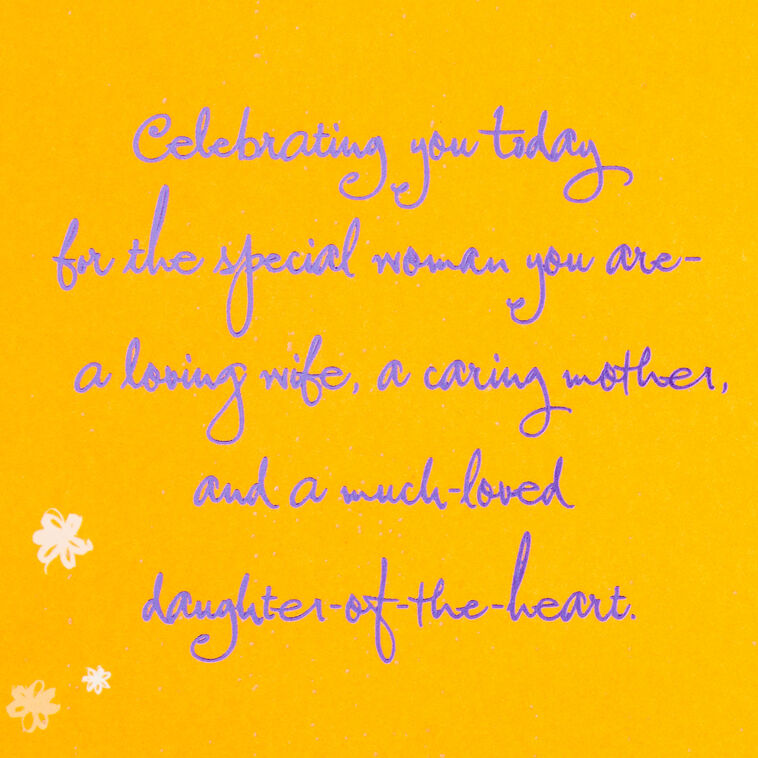 Celebrating you today
for the special woman you are–
a loving wife, a caring mother,
and a much-loved
daughter-of-the-heart.